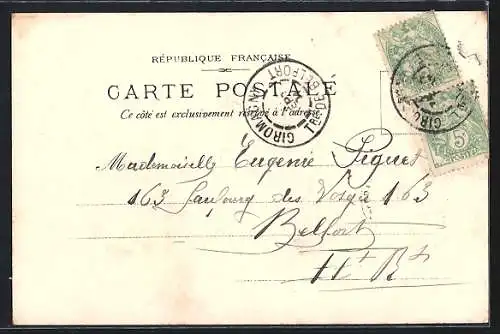 RÉPUBLIQUE FRANÇAISE
CARTE POSTALE
Ce côté est exclusivement réservé à l'adresse
GIROMAGNY
TERRE DE BELFORT
5
Mademoiselle Eugénie Piguet
163 Faubourg des Vosges 163
Belfort